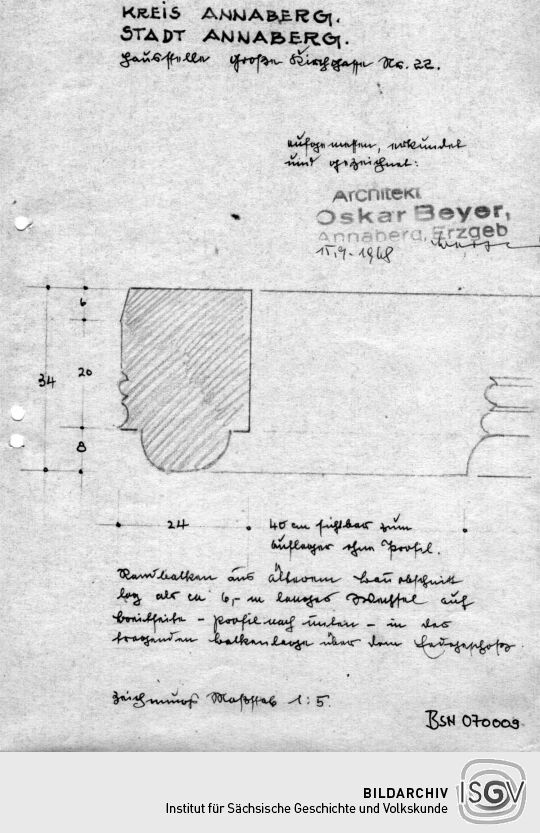 KREIS ANNABERG.
STADT ANNABERG.
Hausstelle Große Kirchgasse Nr. 22.
aufgemessen, erkundet
und gezeichnet:
Architekt
Oskar Beyer,
Annaberg, Erzgeb
15.9.1948
6
20
34
8
24
40 cm sichtbar zum
Auflager ohne Profil.
Randbalken aus älterem Bauabschnitt
lag als ca 6,- m langes Wechsel auf
Breitseite - Profil nach unten - in der
tragenden Balkenlage über dem Erdgeschoß.
Zeichnungs Maßstab 1:5.
BSN 070009
BILDARCHIV
Institut für Sächsische Geschichte und Volkskunde
ISGV